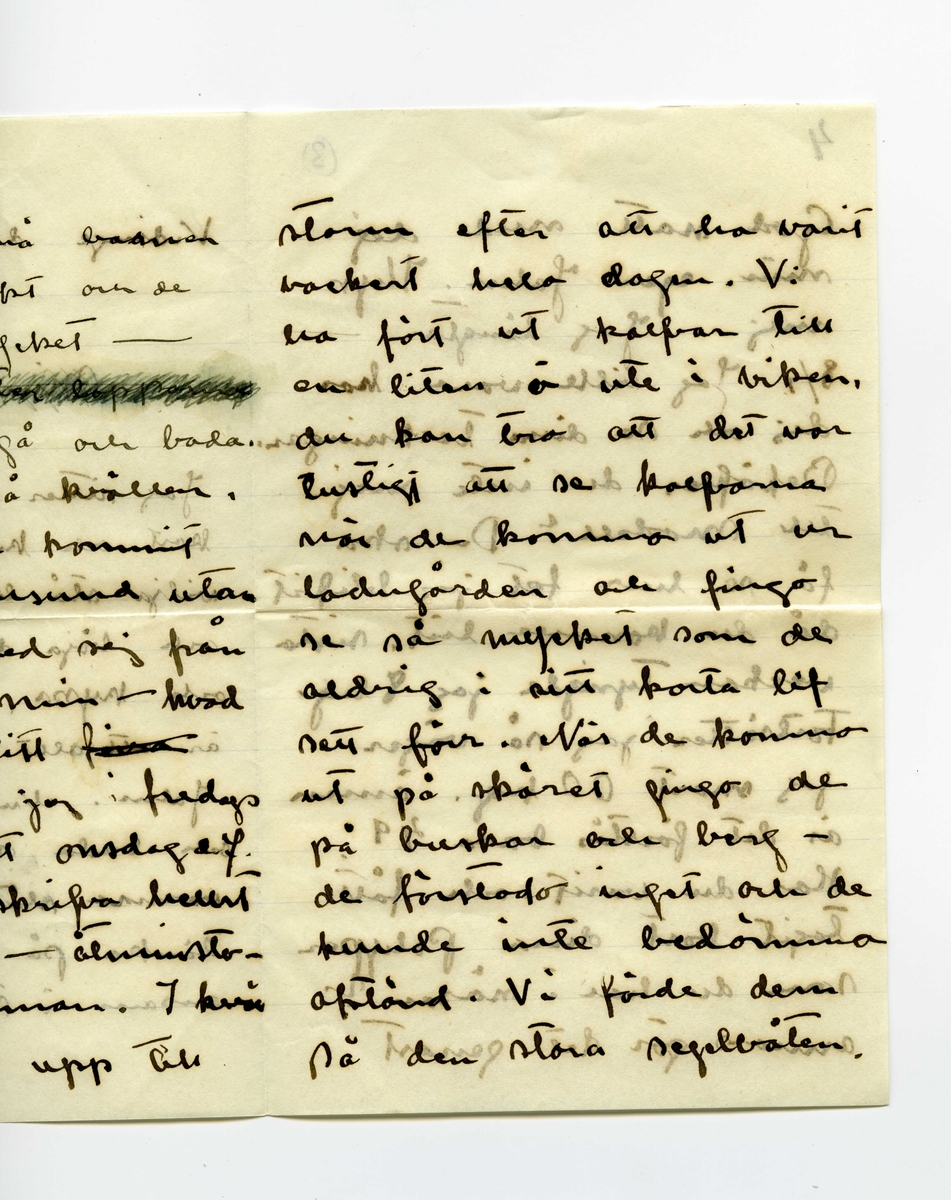 på
och de
—
gå och bada.
å kvällen.
kommit
utan
med sig från
min — hvad
sitt
jag i fredags
onsdag d. 7.
skrifva helst
— åtminsto-
I kvä
upp till
storm efter att ha varit
vackert hela dagen. Vi
ha fört ut kalfvar till
en liten ö ute i viken.
du kan tro att det var
lustigt att se kalfvarna
när de kommo ut ur
ladugården och fingo
se så mycket som de
aldrig i sitt korta lif
sett förr. När de kommo
ut på skäret gingo de
på buskar och berg –
de förstodo inget och de
kunde inte bedömma
afstånd. Vi förde dem
på den stora segelbåten.